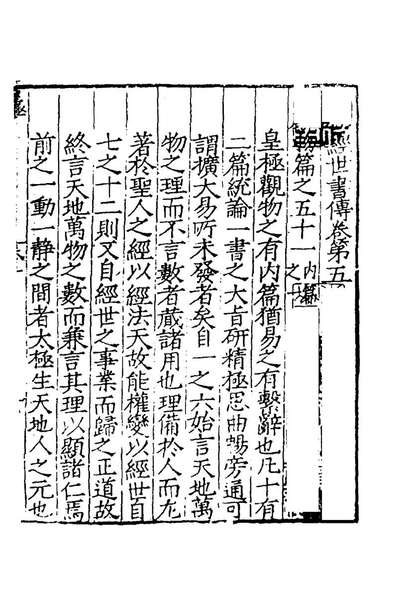 經世書傳卷第五
篇之五十一 內篇之一
皇極觀物之有內篇猶易之有繫辭也凡十有
二篇統論一書之大旨研精極思曲暢旁通可
謂擴大易所未發者矣自一之六始言天地萬
物之理而不言數者藏諸用也理備於人而尤
著於聖人之經以經法天故能權變以經世自
七之十二則又自經世之事業而歸之正道故
終言天地萬物之數而兼言其理以顯諸仁焉
前之一動一静之間者太極生天地人之元也